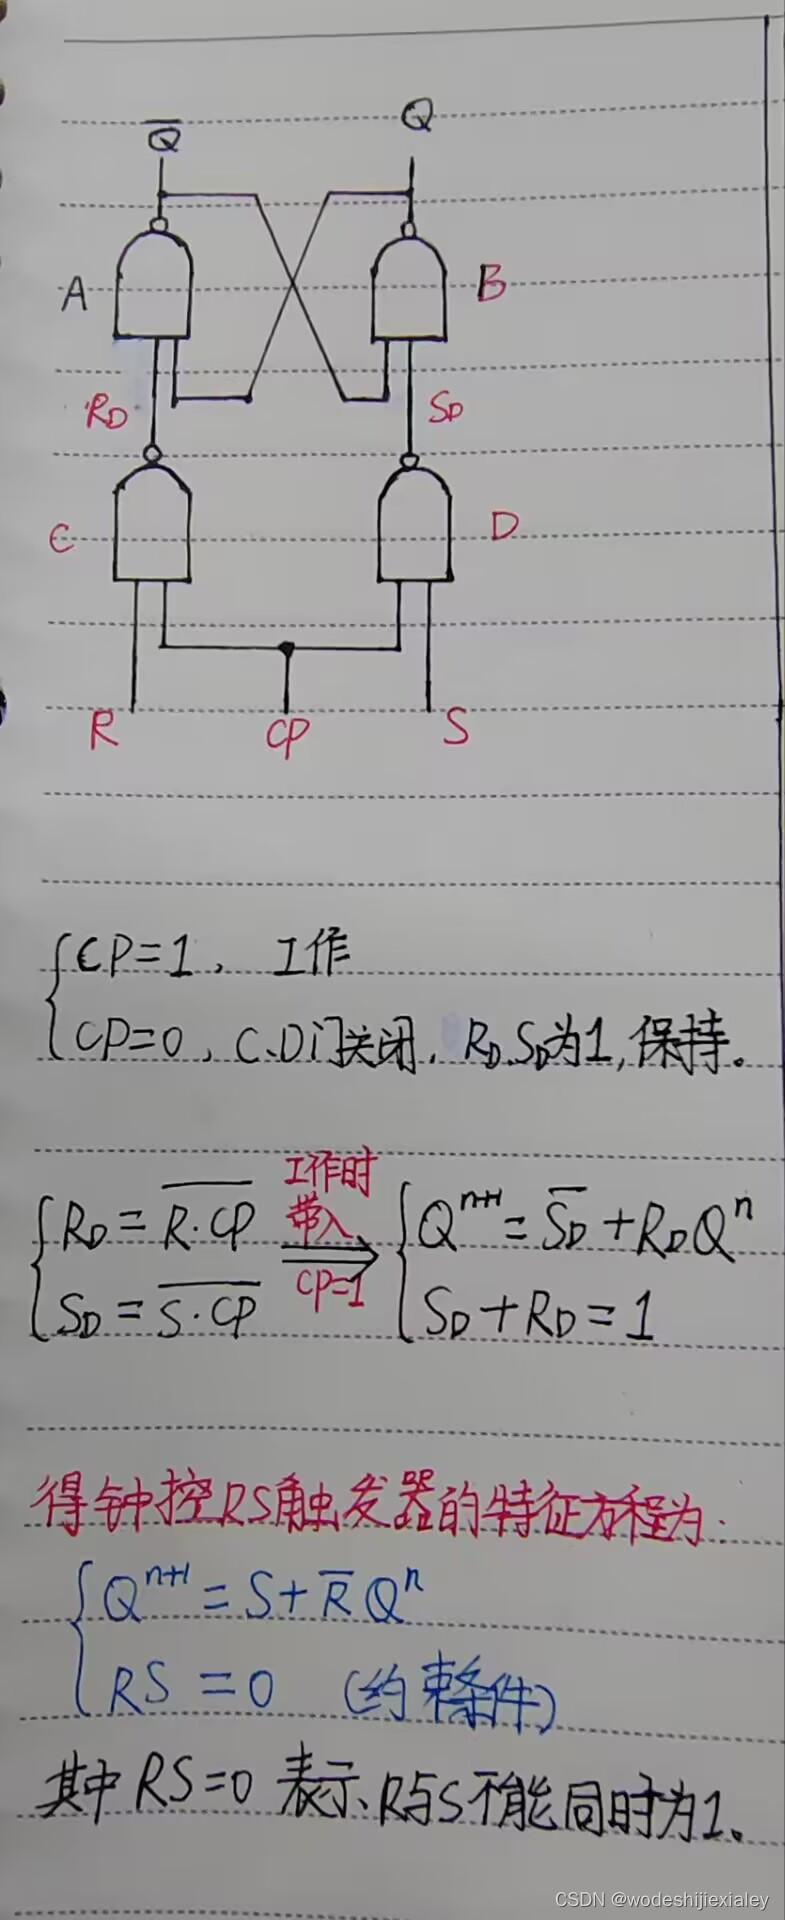 Q̅ Q
A B
R_D S_D
C D
R CP S
CP=1, 工作
CP=0, C.D门关闭, R_D.S_D为1,保持。
工作时
带入
CP=1
R_D = \overline{R·CP}
S_D = \overline{S·CP}
Q^{n+1} = \overline{S_D} + R_D Q^n
S_D + R_D = 1
得钟控RS触发器的特征方程为:
Q^{n+1} = S + \overline{R} Q^n
RS = 0 (约束条件)
其中 RS=0 表示R与S不能同时为1。
CSDN @wodeshijiexialey